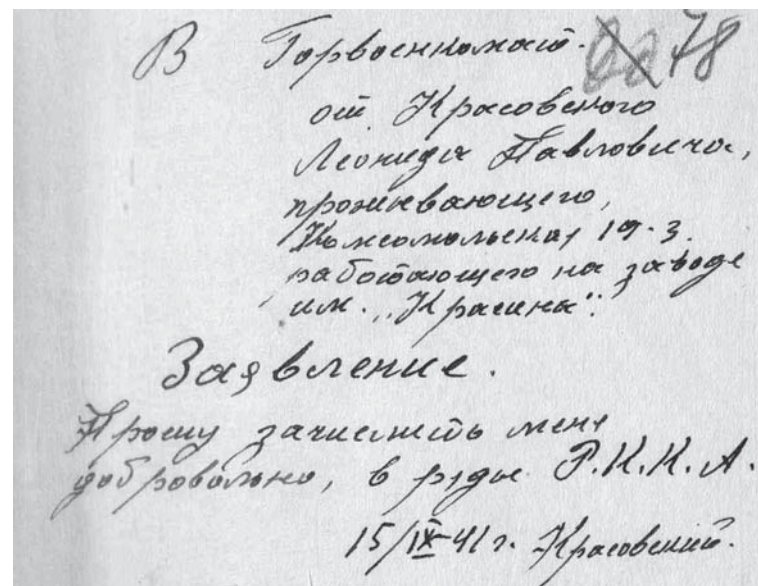 В Горвоенкомат. 78
от Красовского
Леонида Павловича,
проживающего,
Комсомольская 19-3.
работающего на заводе
им. „Красина".
Заявление.
Прошу зачислить меня
добровольно, в ряды Р.К.К.А.
15/IX-41 г. Красовский.